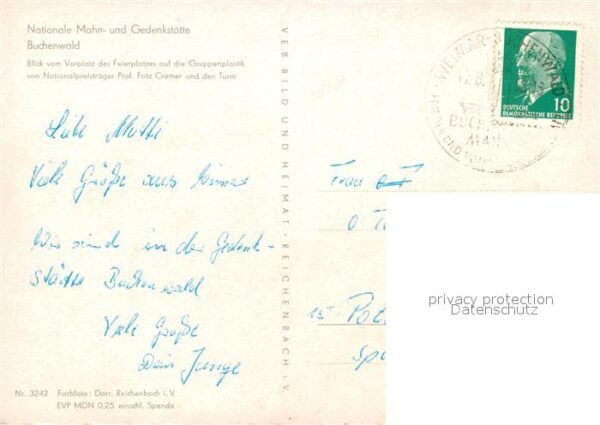 Nationale Mahn- und Gedenkstätte
Buchenwald
Blick vom Vorplatz des Feierplatzes auf die Gruppenplastik
von Nationalpreisträger Prof. Fritz Cremer und den Turm
Liebe Mutti
Viele Grüße aus
Wir sind in der Gedenk-
stätte Buchenwald
Viele Grüße
Dein Junge
Nr. 3242 Farbfoto: Darr, Reichenbach i. V.
EVP MDN 0,25 einschl. Spende
VEB BILD UND HEIMAT · REICHENBACH i. V.
WEIMAR-BUCHENWALD
DEUTSCHE
DEMOKRATISCHE REPUBLIK
10
Frau
15
privacy protection
Datenschutz